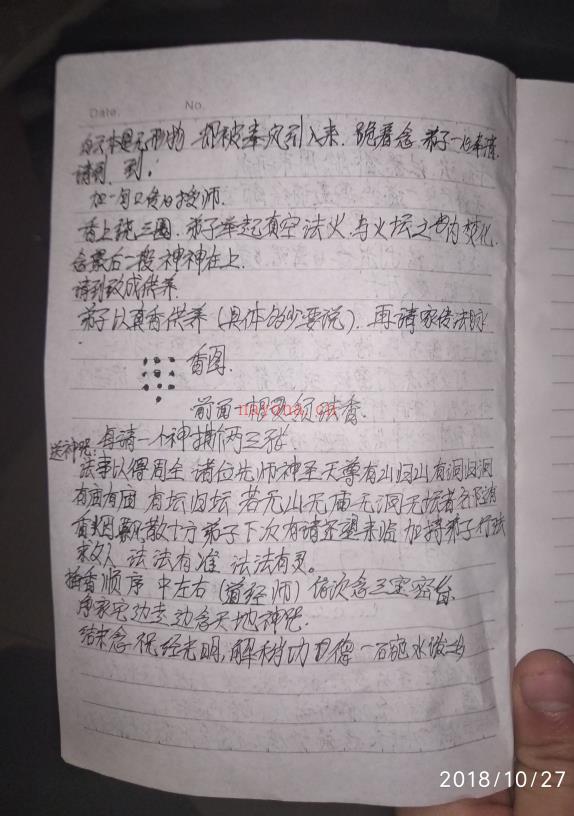 Date. No.
本是无形物 一抑被 引入来. 跪着念 弟子一心奉请.
请到 到:
加一句 祖师.
香上绕三圈. 弟子举起真空法火. 与火坛之内焚化
念最后一段 神神在上.
请到改成供养.
弟子以真香供养 (具体的少要说). 再请家传法脉
香图.
前面一根 法香.
送神咒: 每请一个神撕两三张
法事以得周全 诸位先师神圣天尊有山归山有洞归洞
有庙有庙 有坛归坛 若无山无庙无洞无坛者
散十方 弟子下次有请还望来临 加持弟子行法
求人 法法有准 法法有灵.
插香顺序 中左右 (道经师) 依次念三宝密
边走边念天地神咒.
结束念 经 光明, 解 功德 一碗水
nayona.cn
2018/10/27